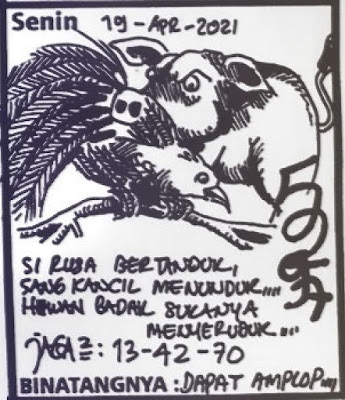 Senin 19-APR-2021
SI RUSA BERTANDUK,
SANG KANCIL MENUNDUK....
HEWAN BADAK SUKANYA
MENYERUDUK...
JAGA2: 13-42-70
BINATANGNYA: DAPAT AMPLOP